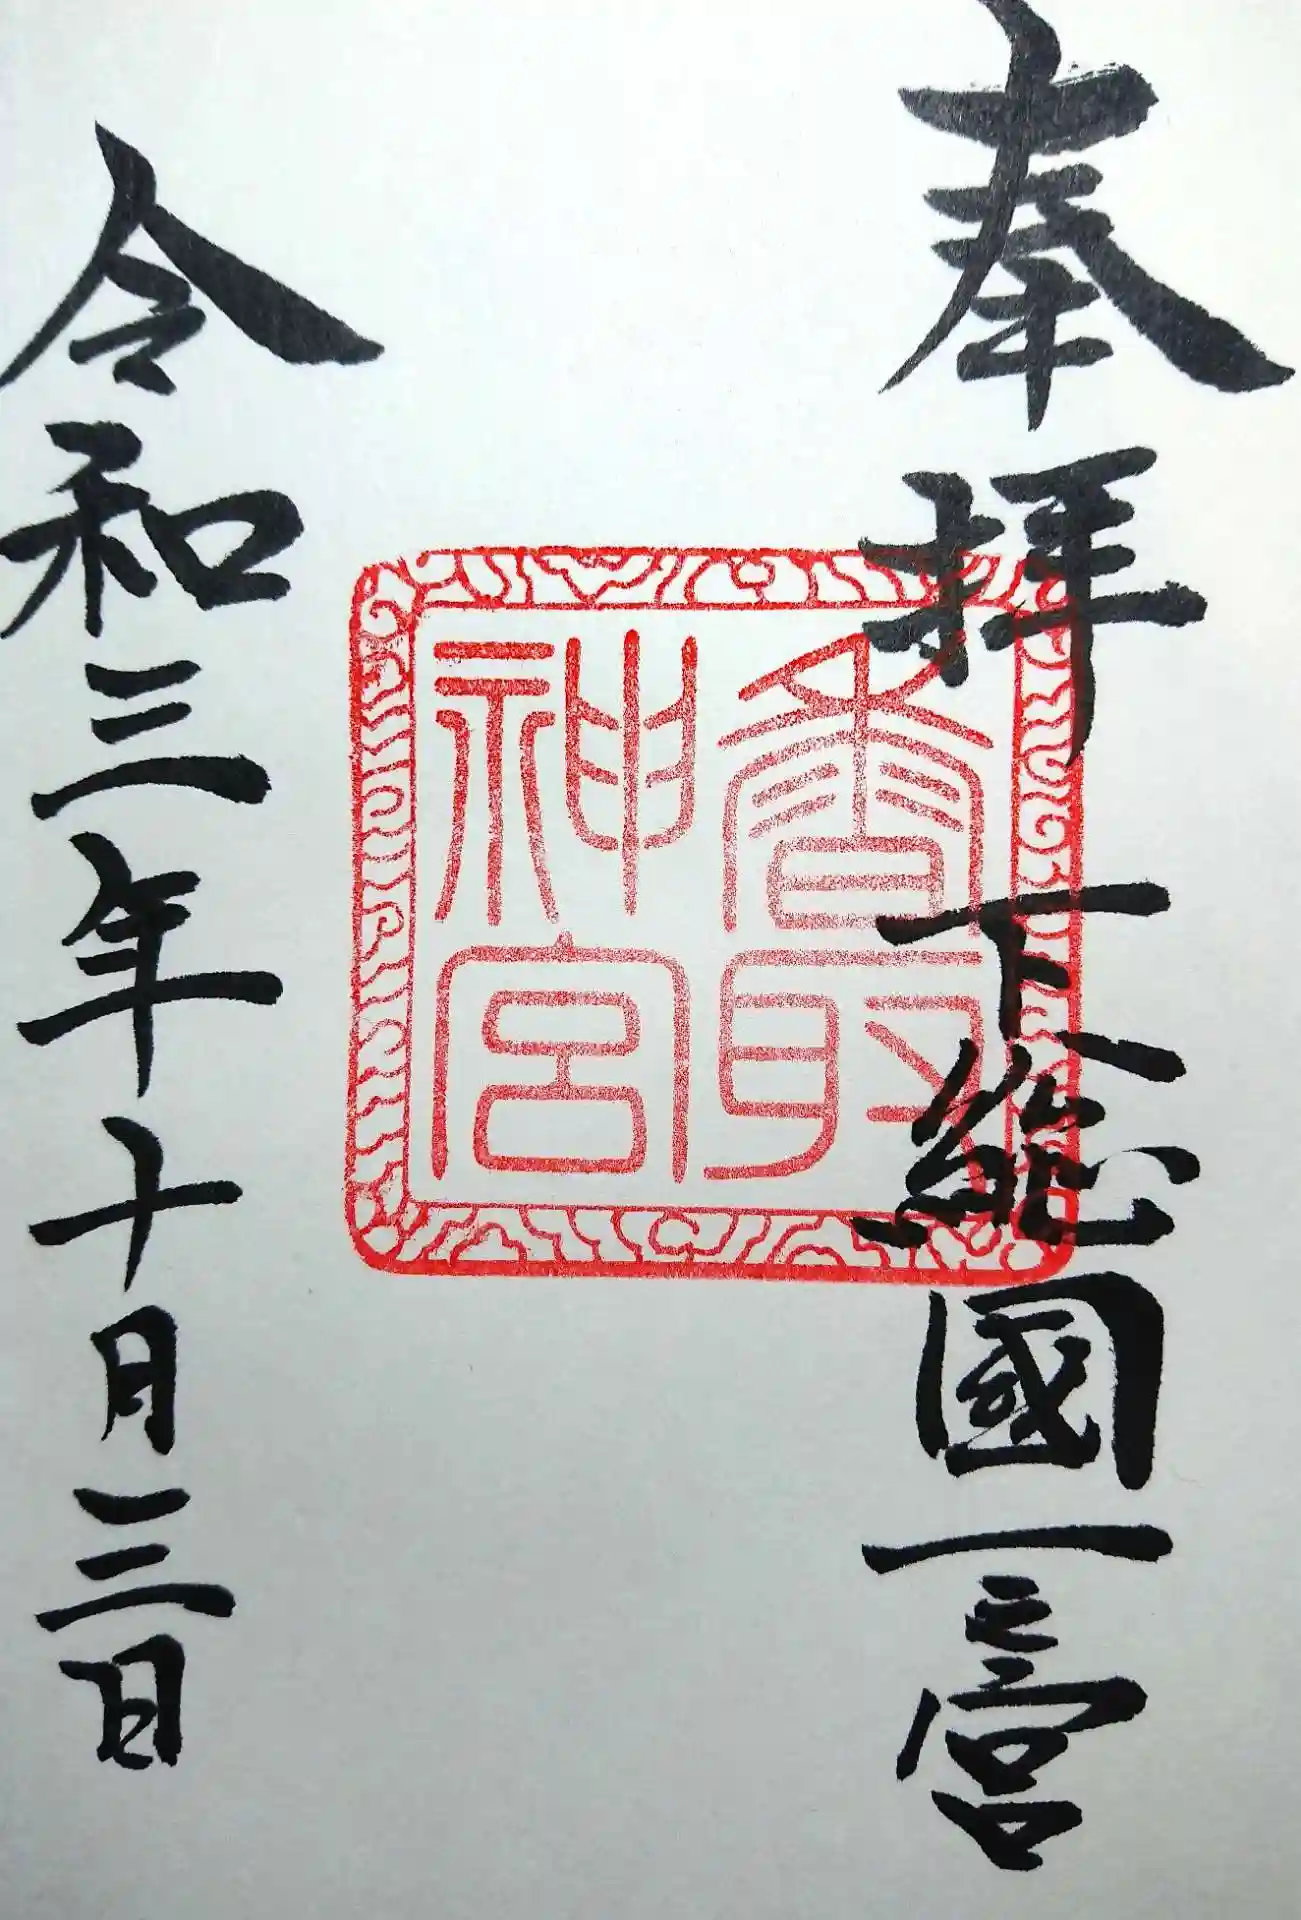 奉拝 下総國一之宮
香取
神宮
令和三年十月三日